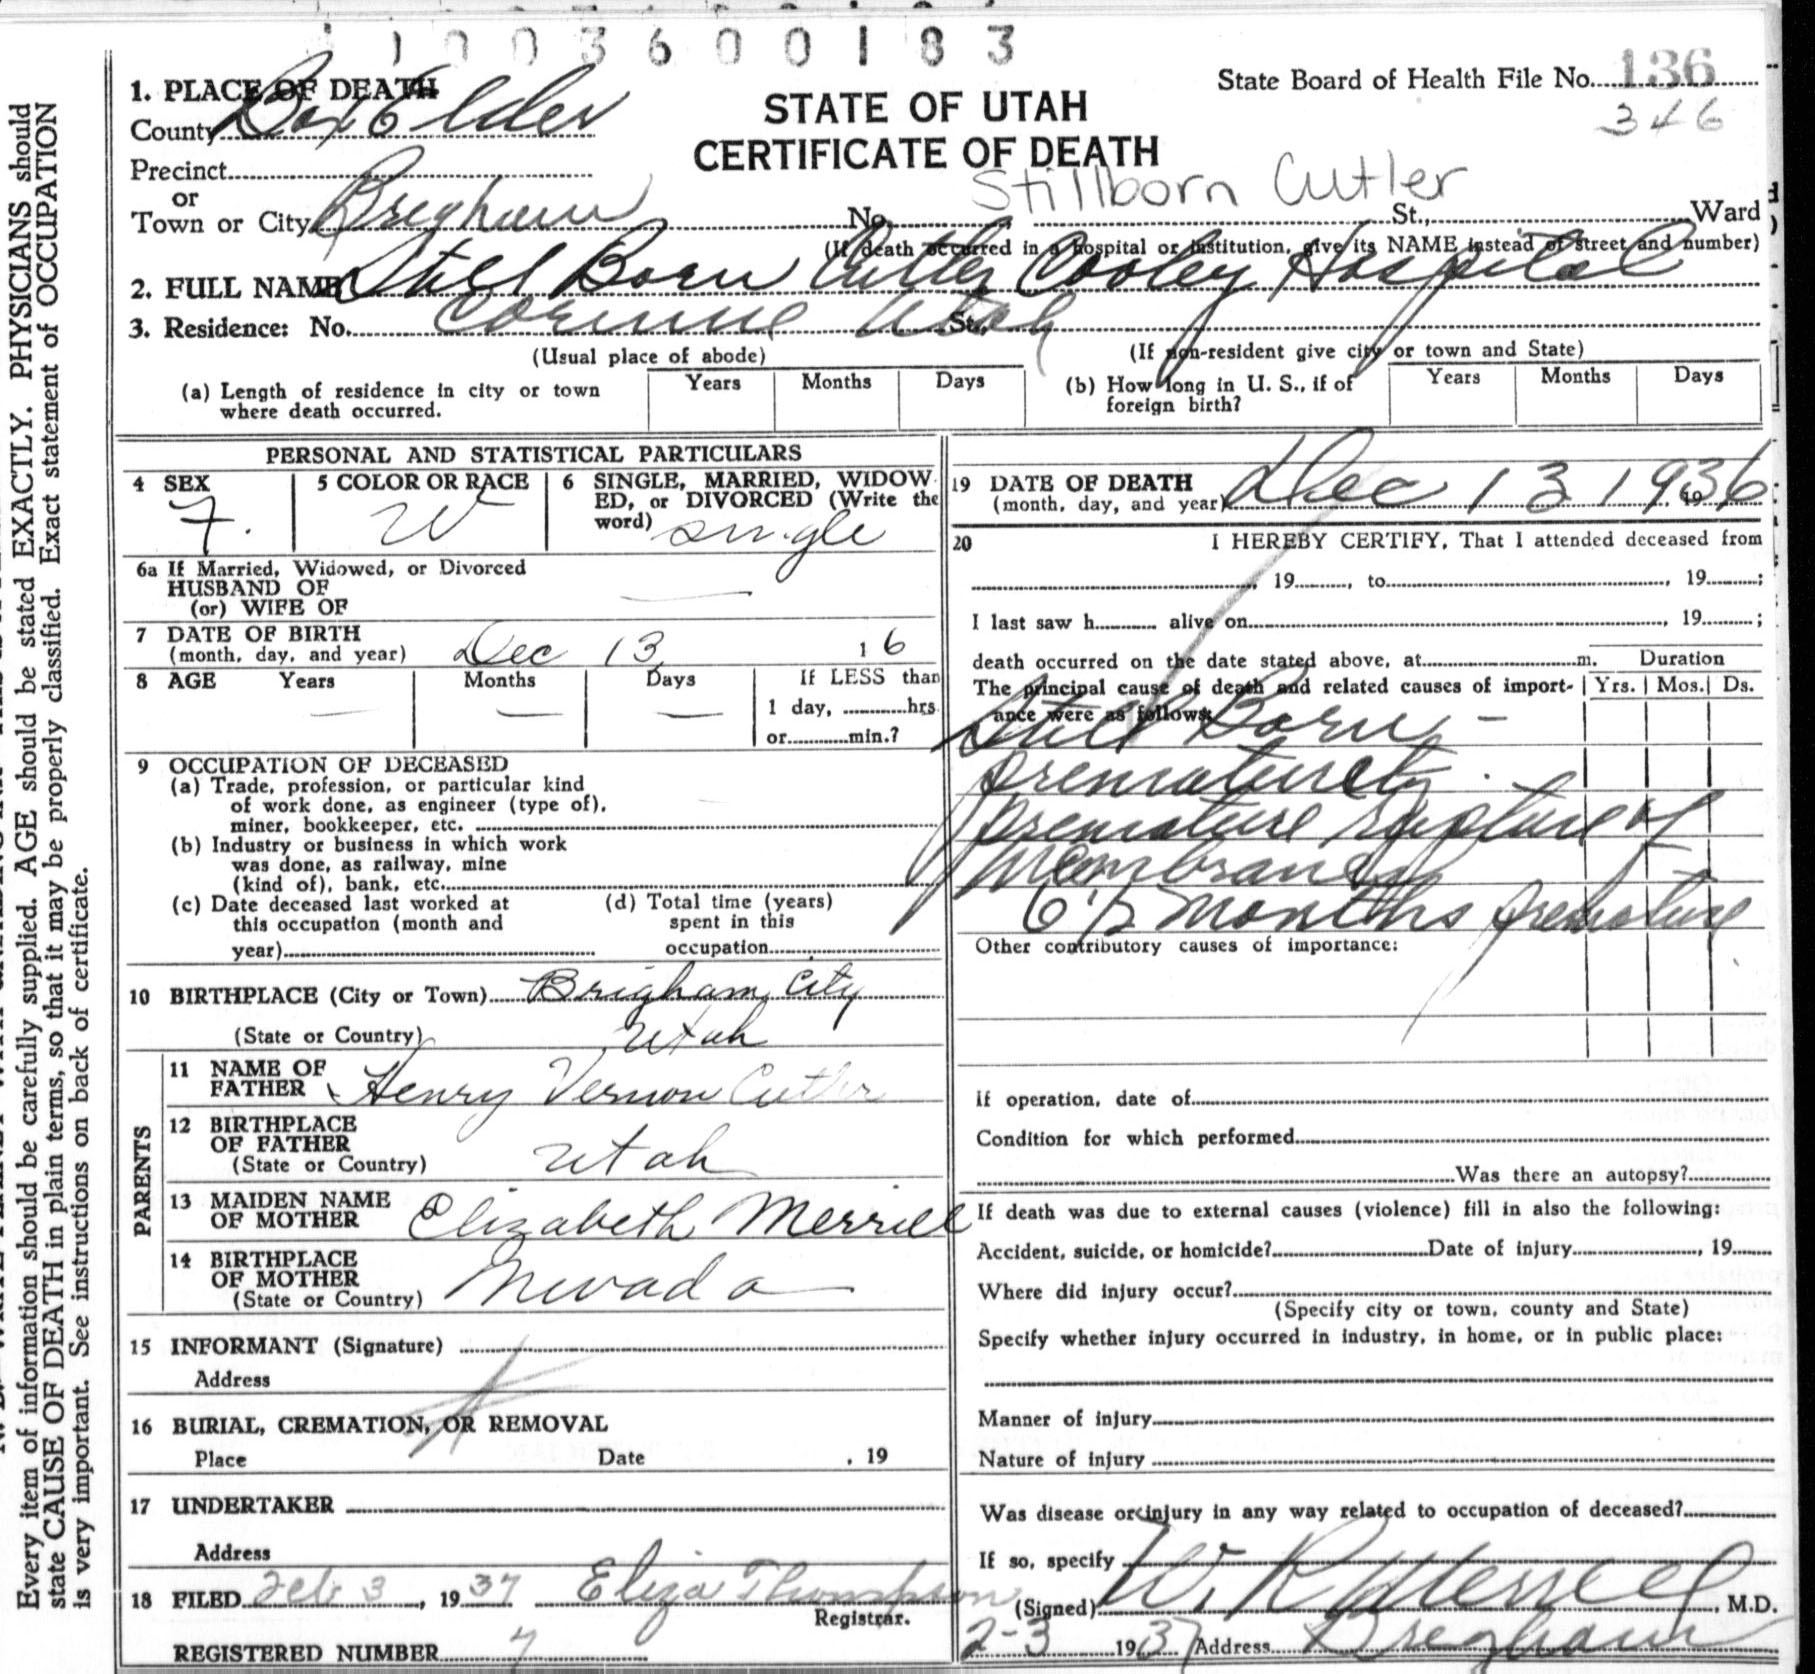 1003600183
1. PLACE OF DEATH
County Box Elder
STATE OF UTAH
CERTIFICATE OF DEATH
State Board of Health File No. 136
346
Precinct
or
Town or City Brigham No. Stillborn Cutler St., Ward
(If death occurred in a hospital or institution, give its NAME instead of street and number)
2. FULL NAME Still Born Cutler Cooley Hospital
3. Residence: No. Corinne Utah St.,
(Usual place of abode) (If non-resident give city or town and State)
(a) Length of residence in city or town where death occurred. Years Months Days (b) How long in U. S., if of foreign birth? Years Months Days
PERSONAL AND STATISTICAL PARTICULARS
4 SEX F. 5 COLOR OR RACE W 6 SINGLE, MARRIED, WIDOW-
ED, or DIVORCED (Write the
word) single
6a If Married, Widowed, or Divorced
HUSBAND OF
(or) WIFE OF —
7 DATE OF BIRTH
(month, day, and year) Dec 13 1 6
8 AGE Years Months Days If LESS than
— — — 1 day, hrs.
or min.?
9 OCCUPATION OF DECEASED
(a) Trade, profession, or particular kind
of work done, as engineer (type of),
miner, bookkeeper, etc.
(b) Industry or business in which work
was done, as railway, mine
(kind of), bank, etc.
(c) Date deceased last worked at
this occupation (month and
year)
(d) Total time (years)
spent in this
occupation
10 BIRTHPLACE (City or Town) Brigham City
(State or Country) Utah
PARENTS
11 NAME OF
FATHER Henry Vernon Cutler
12 BIRTHPLACE
OF FATHER
(State or Country) Utah
13 MAIDEN NAME
OF MOTHER Elizabeth Merrill
14 BIRTHPLACE
OF MOTHER
(State or Country) Nevada
15 INFORMANT (Signature)
Address
16 BURIAL, CREMATION, OR REMOVAL
Place Date , 19
17 UNDERTAKER
Address
18 FILED Feb 3, 1937 Eliza Thompson
Registrar.
REGISTERED NUMBER 7
19 DATE OF DEATH
(month, day, and year) Dec 13 1936 , 19
20 I HEREBY CERTIFY, That I attended deceased from
, 19 , to , 19 ;
I last saw h alive on , 19 ;
death occurred on the date stated above, at m. Duration
The principal cause of death and related causes of import- Yrs. Mos. Ds.
ance were as follows:
Still Born -
prematurety.
premature rupture of
membranes
6 1/2 months premature
Other contributory causes of importance:
If operation, date of
Condition for which performed
Was there an autopsy?
If death was due to external causes (violence) fill in also the following:
Accident, suicide, or homicide? Date of injury , 19
Where did injury occur?
(Specify city or town, county and State)
Specify whether injury occurred in industry, in home, or in public place:
Manner of injury
Nature of injury
Was disease or injury in any way related to occupation of deceased?
If so, specify
(Signed) W. R. Merrell, M.D.
2-3 1937 Address Brigham
Every item of information should be carefully supplied. AGE should be stated EXACTLY. PHYSICIANS should
state CAUSE OF DEATH in plain terms, so that it may be properly classified. Exact statement of OCCUPATION
is very important. See instructions on back of certificate.